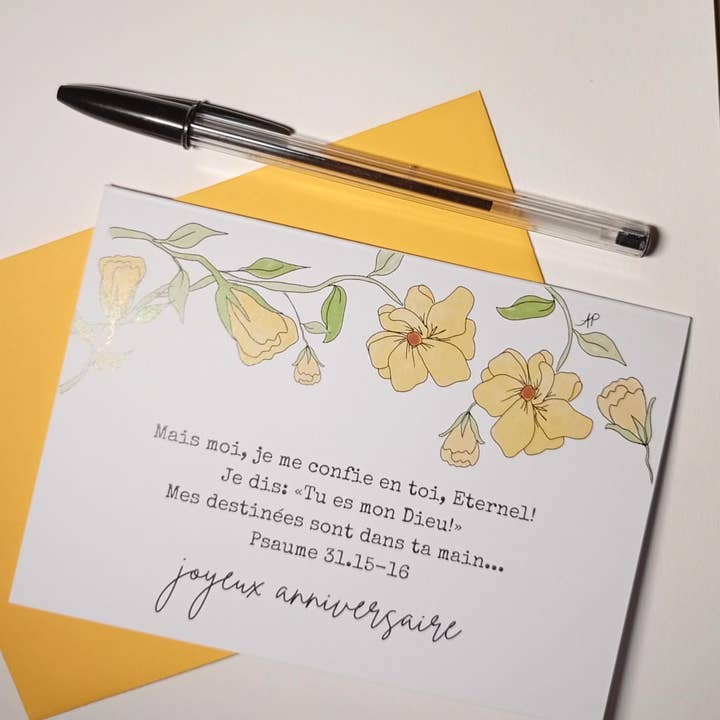 AP
Mais moi, je me confie en toi, Eternel!
Je dis: «Tu es mon Dieu!»
Mes destinées sont dans ta main...
Psaume 31.15-16
joyeux anniversaire